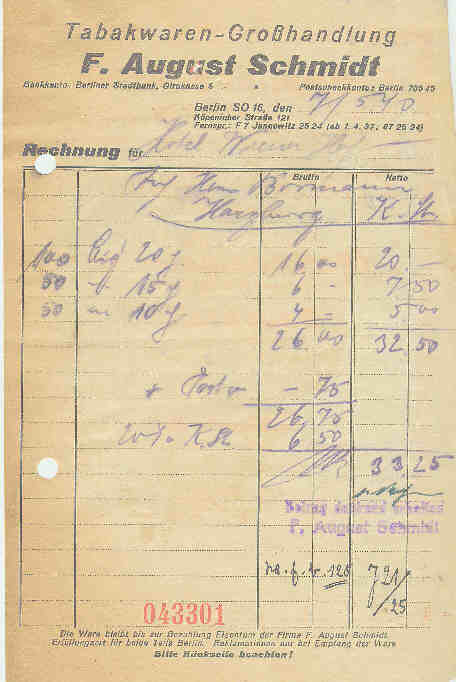 Tabakwaren-Großhandlung
F. August Schmidt
Bankkonto: Berliner Stadtbank, Girokasse 5 Postscheckkonto: Berlin 705 45
Berlin SO 16, den 7/5 40
Köpenicker Straße 121
Fernspr.: F 7 Jannowitz 25 24 (ab 1. 4. 37: 67 25 24)
Rechnung für Hotel
Brutto Netto
Herrn Bormann
Harzburg K. St.
100 Cig 20 g 16 00 20 -
50 " 15 g 6 - 7 50
50 " 10 g 4 = 5 00
26 00 32 50
+ Porto - 75
26,75
20% K. St. 6 50
33,25
Betrag dankend erhalten
F. August Schmidt
125
721/25
043301
Die Ware bleibt bis zur Bezahlung Eigentum der Firma F. August Schmidt.
Erfüllungsort für beide Teile Berlin. Reklamationen nur bei Empfang der Ware
Bitte Rückseite beachten!